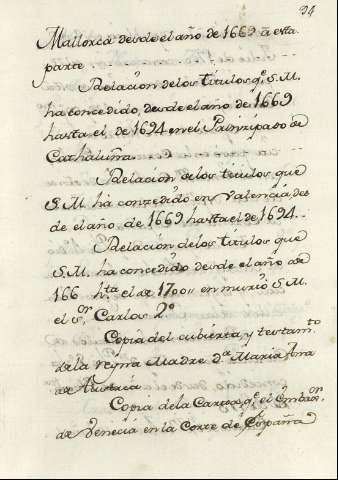 94
Mallorca desde el año de 1669 a esta
parte.
Relacion de los titulos q.e S. M.
ha concedido, desde el año de 1669
hasta el de 1694 en el Prinzipado de
Cathaluña.
Relacion de los titulos que
S. M. ha conzedido en Valencia des
de el año de 1669 hasta el de 1694.
Relacion de los titulos que
S. M. ha concedido desde el año de
166 h.ta el de 1700 en murio S. M.
el S.or Carlos 2.o
Copia del cubierta, y testam.to
de la reyna Madre d.a Maria Ana
de Austria
Copia de la Carta q.e el Embax.or
de Venecia en la Corte de España